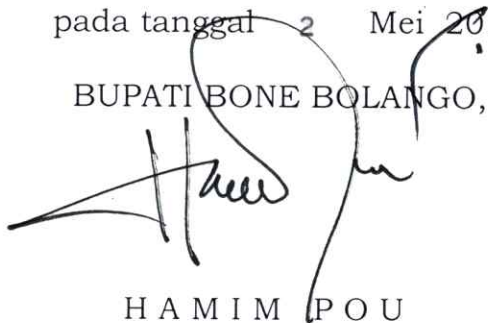 pada tanggal 2 Mei 20
BUPATI BONE BOLANGO,
HAMIM POU